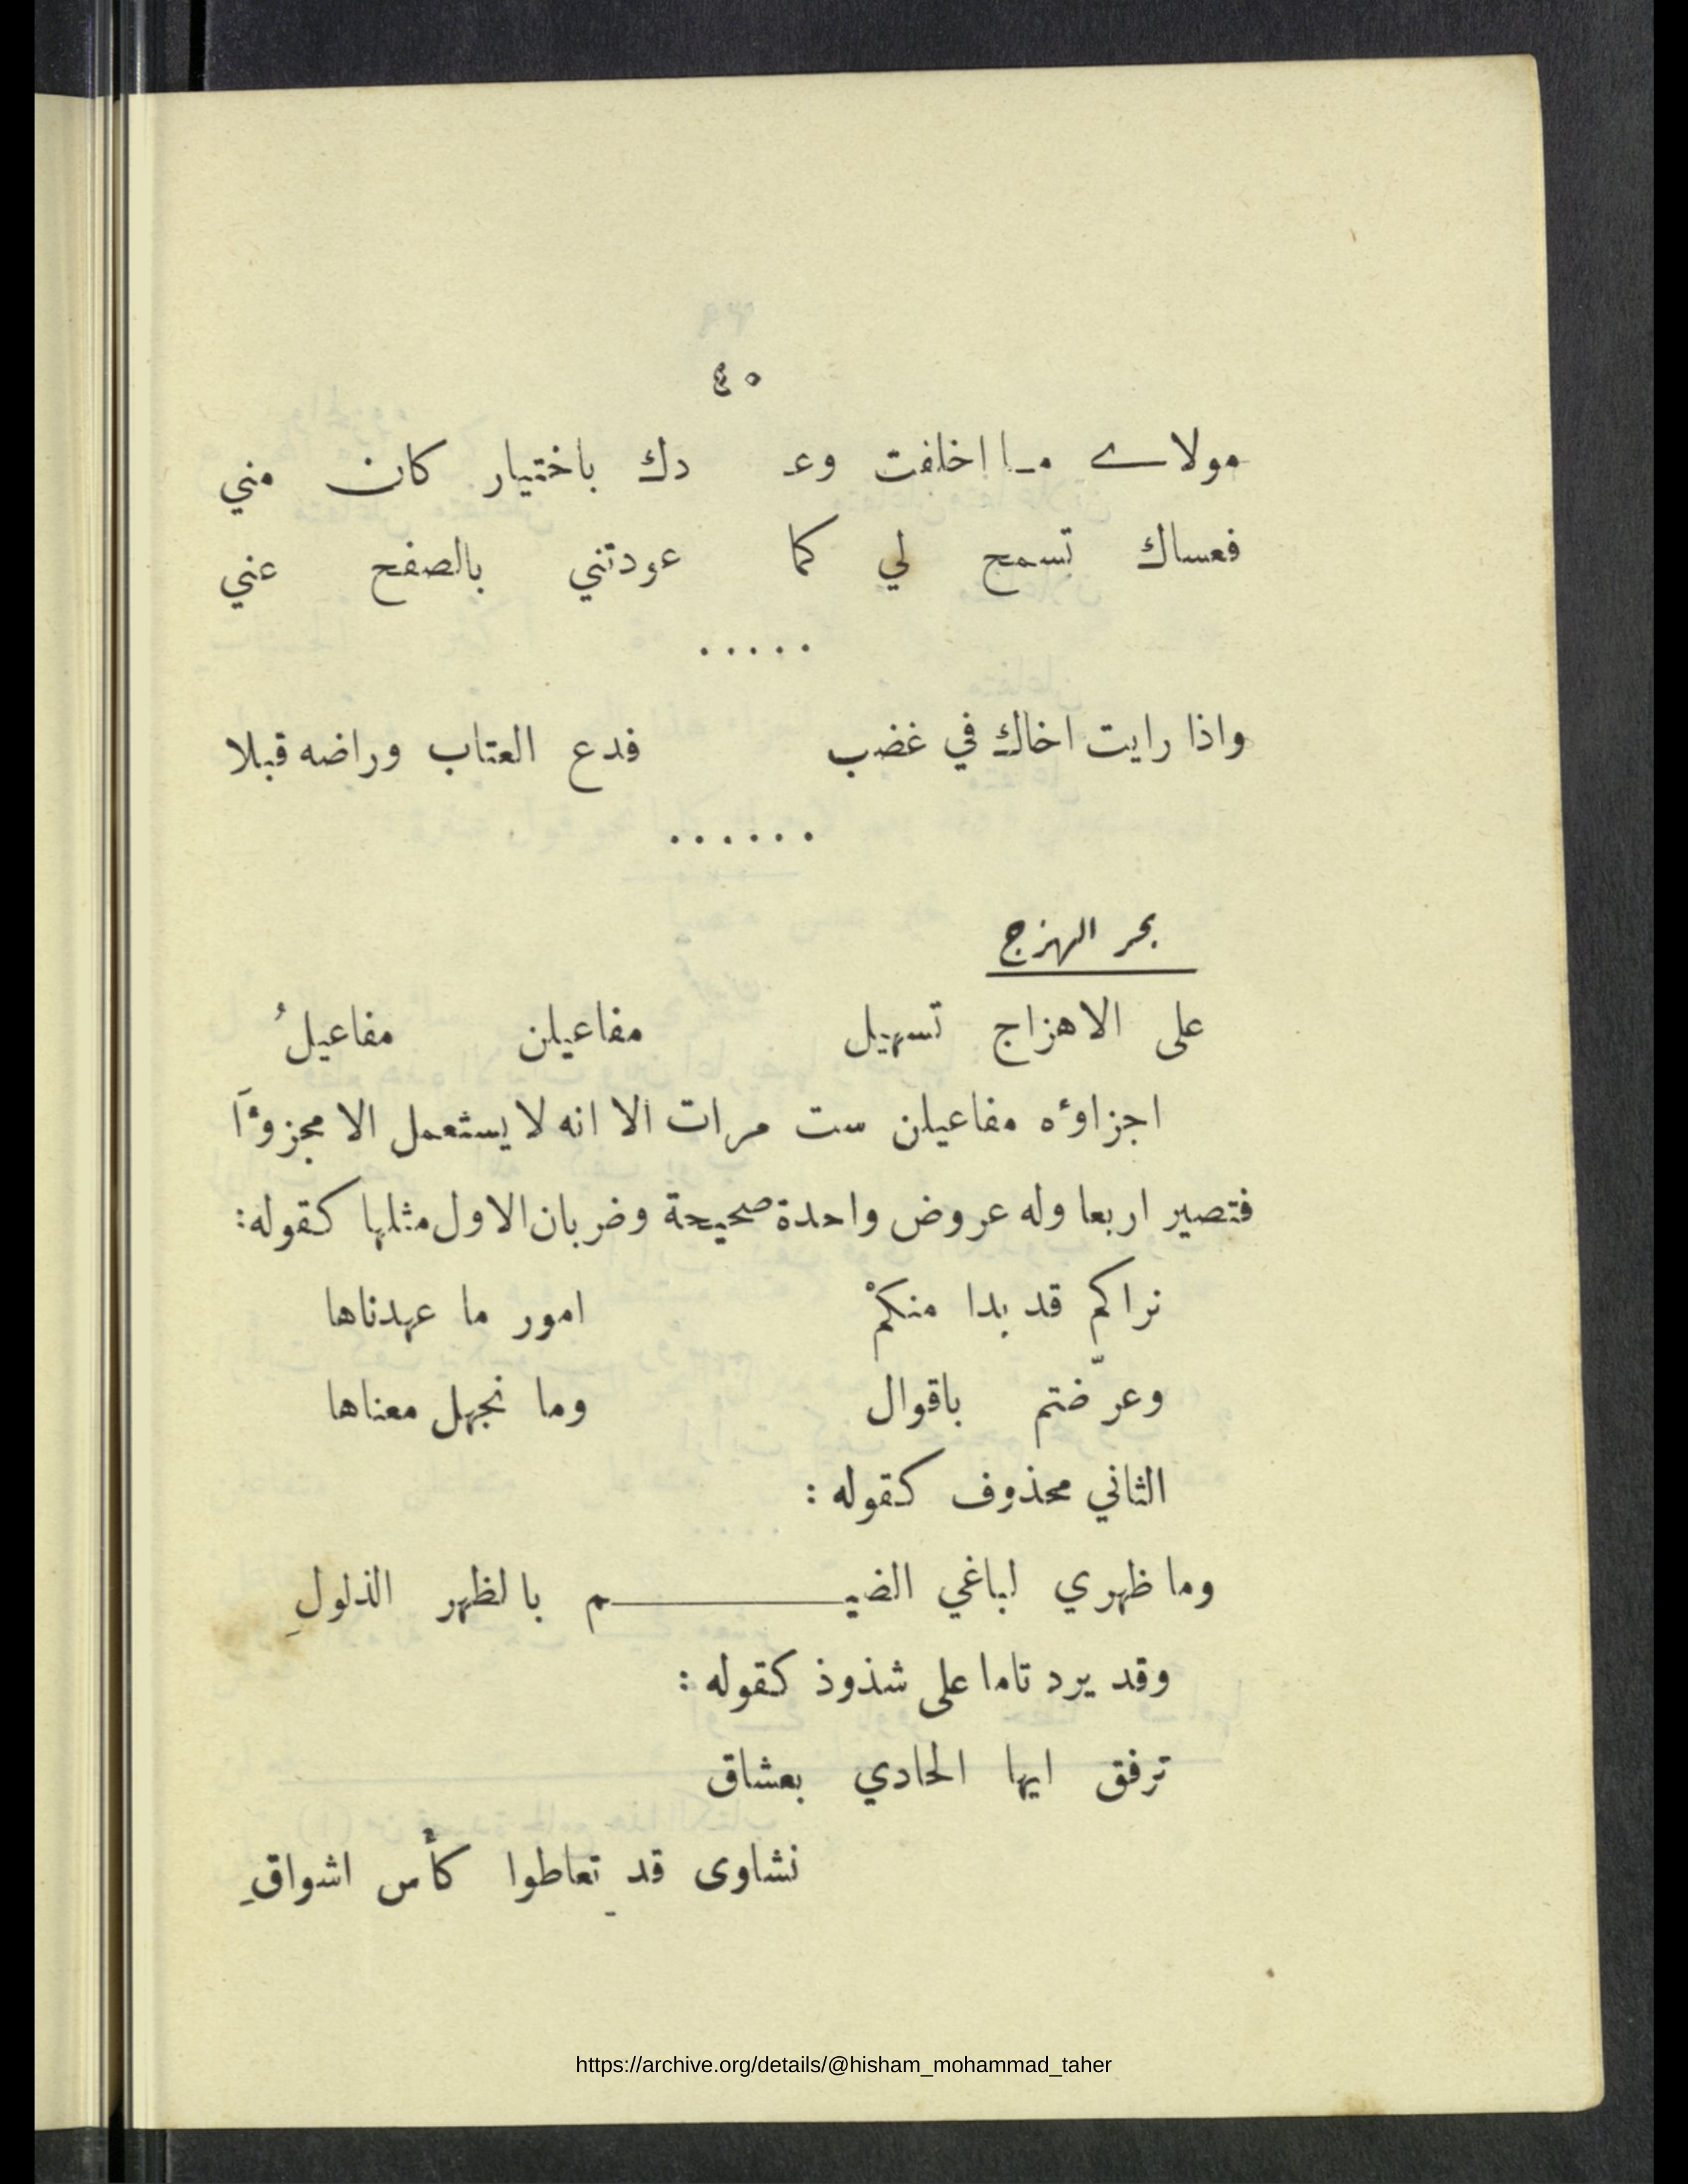 ٤٠
مولاے مـا اخلفت وعـ دك باختيار كان مني
فعساك تسمح لي كما عودتني بالصفح عني
.....
واذا رايت اخاك في غضب فدع العتاب وراضه قبلا
......
بحر الهزج
على الاهزاج تسهيل مفاعيلن مفاعيلُ
اجزاوٴه مفاعيلن ست مرات الا انه لا يستعمل الا مجزوٴاً
فتصير اربعا وله عروض واحدة صحيحة وضربان الاول مثلها كقوله:
نراكم قد بدا منكمْ امور ما عهدناها
وعرّضتم باقوال وما نجهل معناها
الثاني محذوف كقوله :
وما ظهري لباغي الضيـــــــــم بالظهر الذلولِ
وقد يرد تاما على شذوذ كقوله :
ترفق ايها الحادي بعشاق
نشاوى قد تعاطوا كأس اشواقِ
https://archive.org/details/@hisham_mohammad_taher